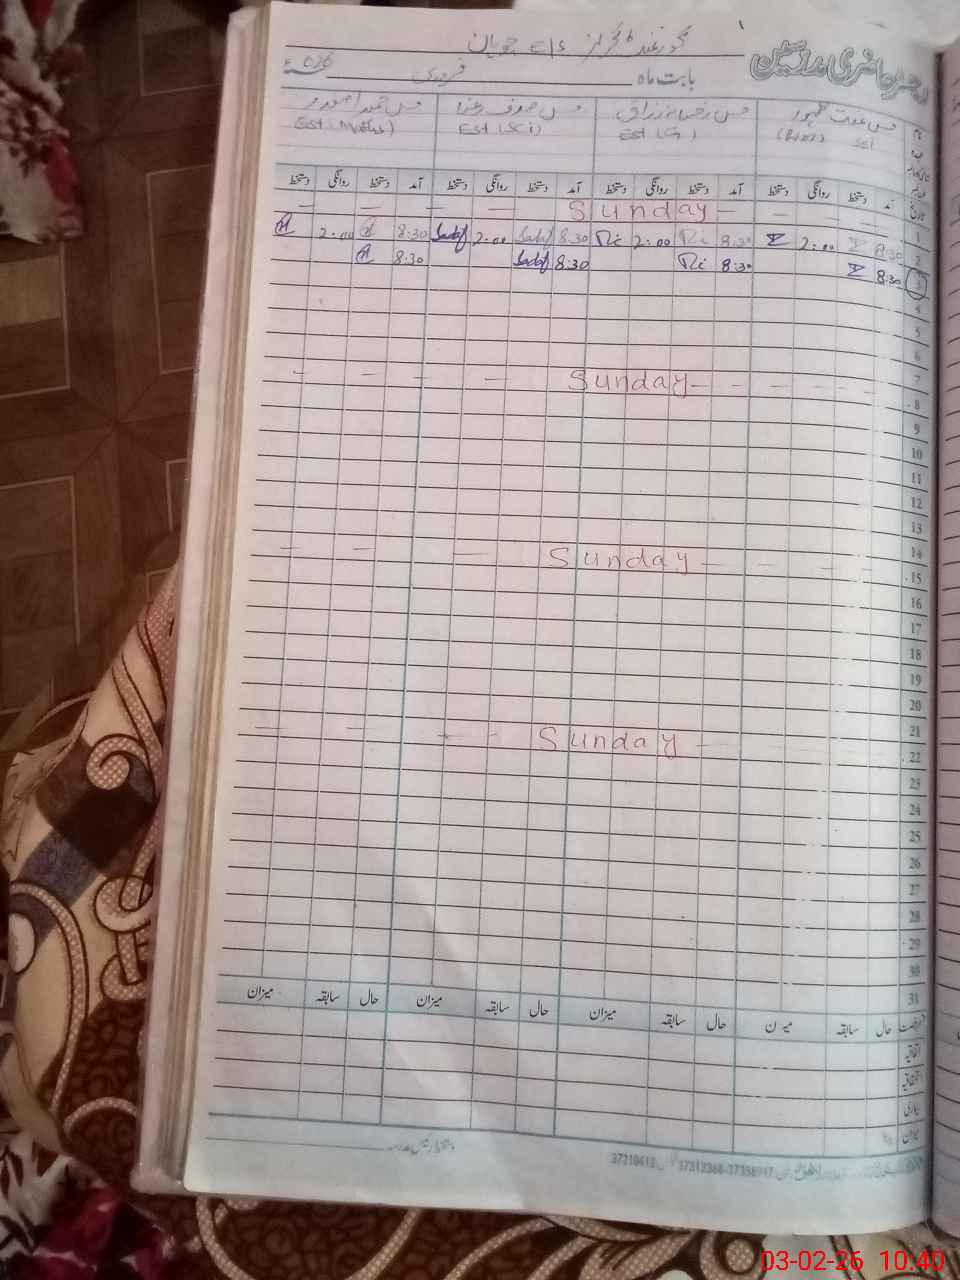 رجسٹر حاضری مدرسین
گورنمنٹ گرلز E/S چوپان
بابت ماہ فروری 026ء
مس ظہور مس رزاق مس صدف مس
SSE EST (G) EST (Sci) EST (Maths)
نام
تاریخ آمد دستخط روانگی دستخط آمد دستخط روانگی دستخط آمد دستخط روانگی دستخط آمد دستخط روانگی دستخط
1 Sunday
2 8:30 2:00 8:30 Ri 2:00 Ri 8:30 Sadaf 2:00 Sadaf 8:30 2:00
3 8:30 8:30 Ri 8:30 Sadaf 8:30
4
5
6
7
8 Sunday
9
10
11
12
13
14
15 Sunday
16
17
18
19
20
21
22 Sunday
23
24
25
26
27
28
29
30
31
رخصت حال سابقہ میزان حال سابقہ میزان حال سابقہ میزان حال سابقہ میزان
اتفاقیہ
استحقاقیہ
بیماری
میزان
دستخط رئیس مدرسہ
37210412
03-02-26 10:40